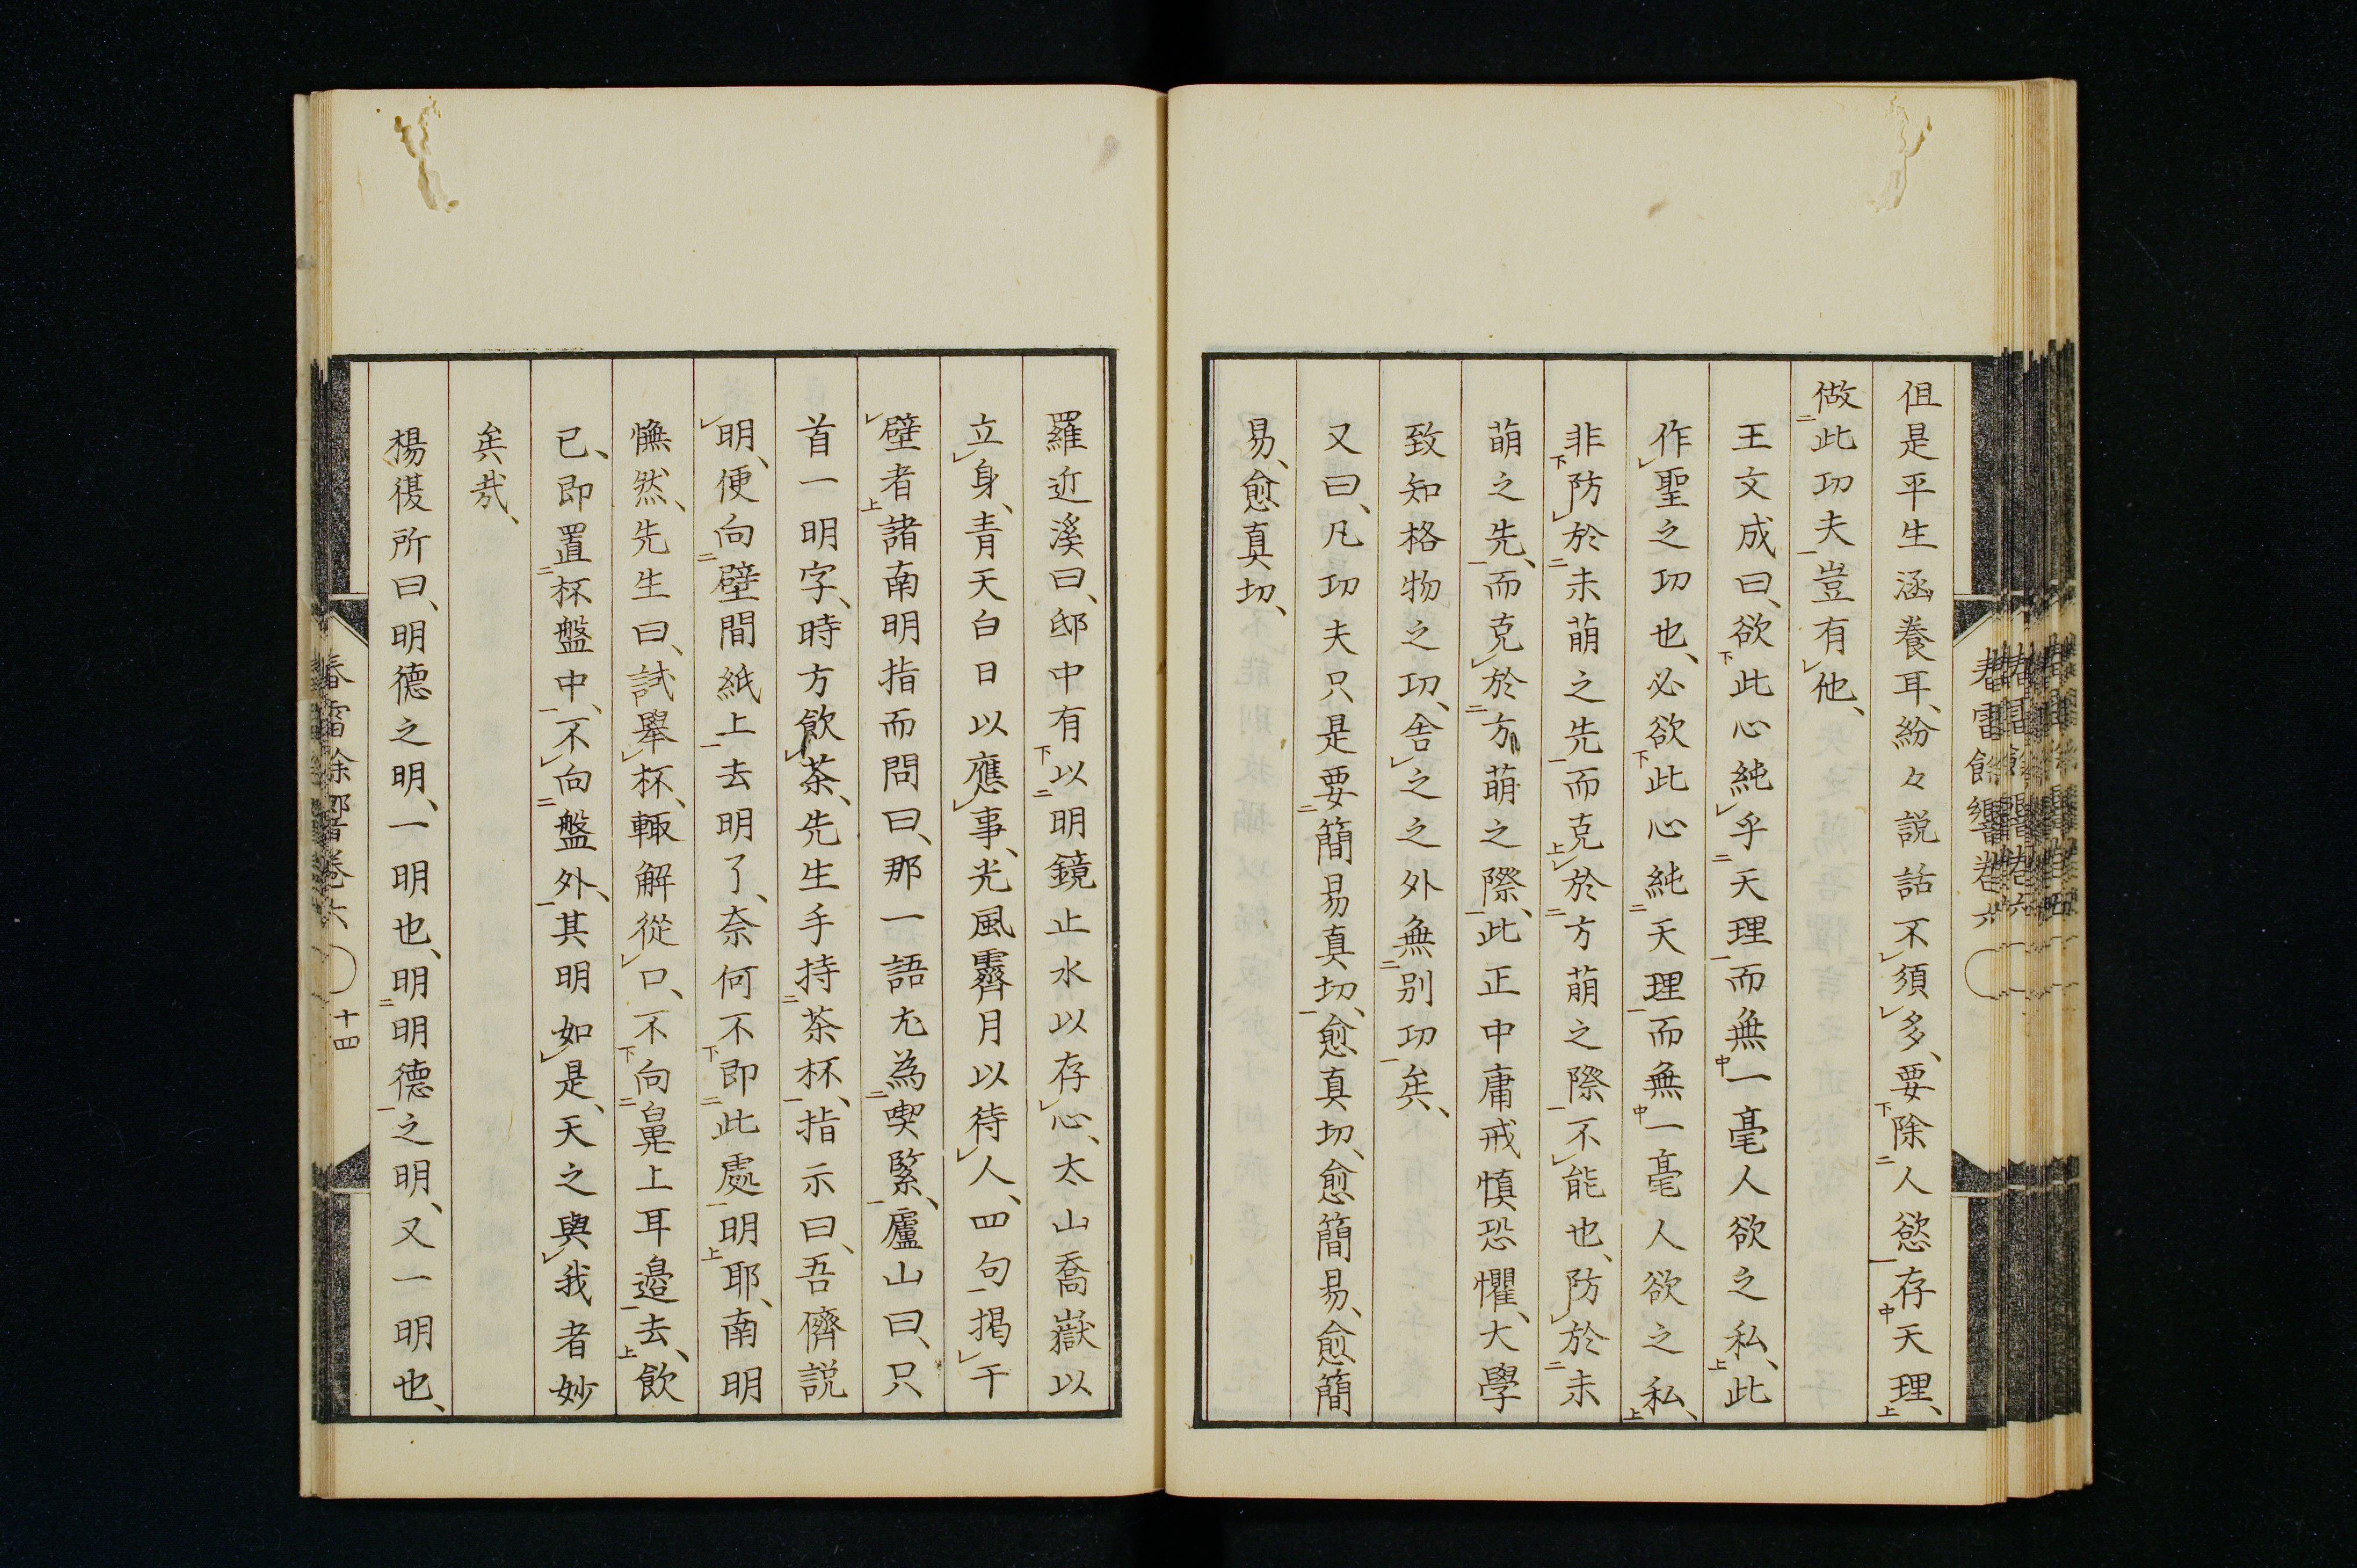 但是平生涵養耳、紛々説話不須多、要除人慾存天理、
做此功夫豈有他、
王文成曰、欲此心純乎天理而無一毫人欲之私、此
作聖之功也、必欲此心純天理而無一毫人欲之私、
非防於未萌之先而克於方萌之際不能也、防於未
萌之先、而克於方萌之際、此正中庸戒慎恐懼、大學
致知格物之功、舎之之外無別功矣、
又曰、凡功夫只是要簡易真切、愈真切、愈簡易、愈簡
易、愈真切、
羅近溪曰、邸中有以明鏡止水以存心、太山喬嶽以
立身、青天白日以應事、光風霽月以待人、四句揭于
壁者諸南明指而問曰、那一語尤為喫緊、廬山曰、只
首一明字、時方飲茶、先生手持茶杯、指示曰、吾儕説
明、便向壁間紙上去明了、奈何不即此處明耶、南明
憮然、先生曰、試舉杯、輙解從口、不向鼻上耳邉去、飲
已、即置杯盤中、不向盤外、其明如是、天之與我者妙
矣哉、
楊復所曰、明德之明、一明也、明明德之明、又一明也、
春雷餘響卷六
十四